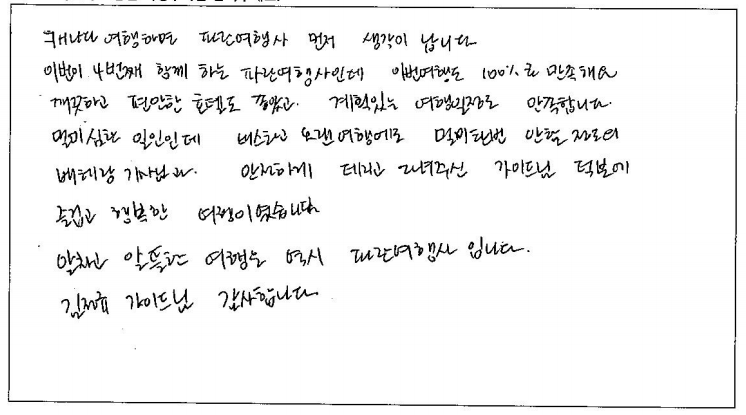 캐나다 여행하면 파란여행사 먼저 생각이 납니다
이번이 4번째 함께 하는 파란여행사인데 이번여행도 100%로 만족해요
깨끗하고 편안한 호텔도 좋았고. 계획있는 여행일정도 만족합니다.
멀미심한 일인인데 버스타고 오랜여행에도 멀미한번 안할 정도의
베테랑 기사님과. 안전하게 데리고 다녀주신 가이드님 덕분에
즐겁고 행복한 여행이였습니다
알차고 알뜰한 여행은 역시 파란여행사 입니다.
가이드님 감사합니다